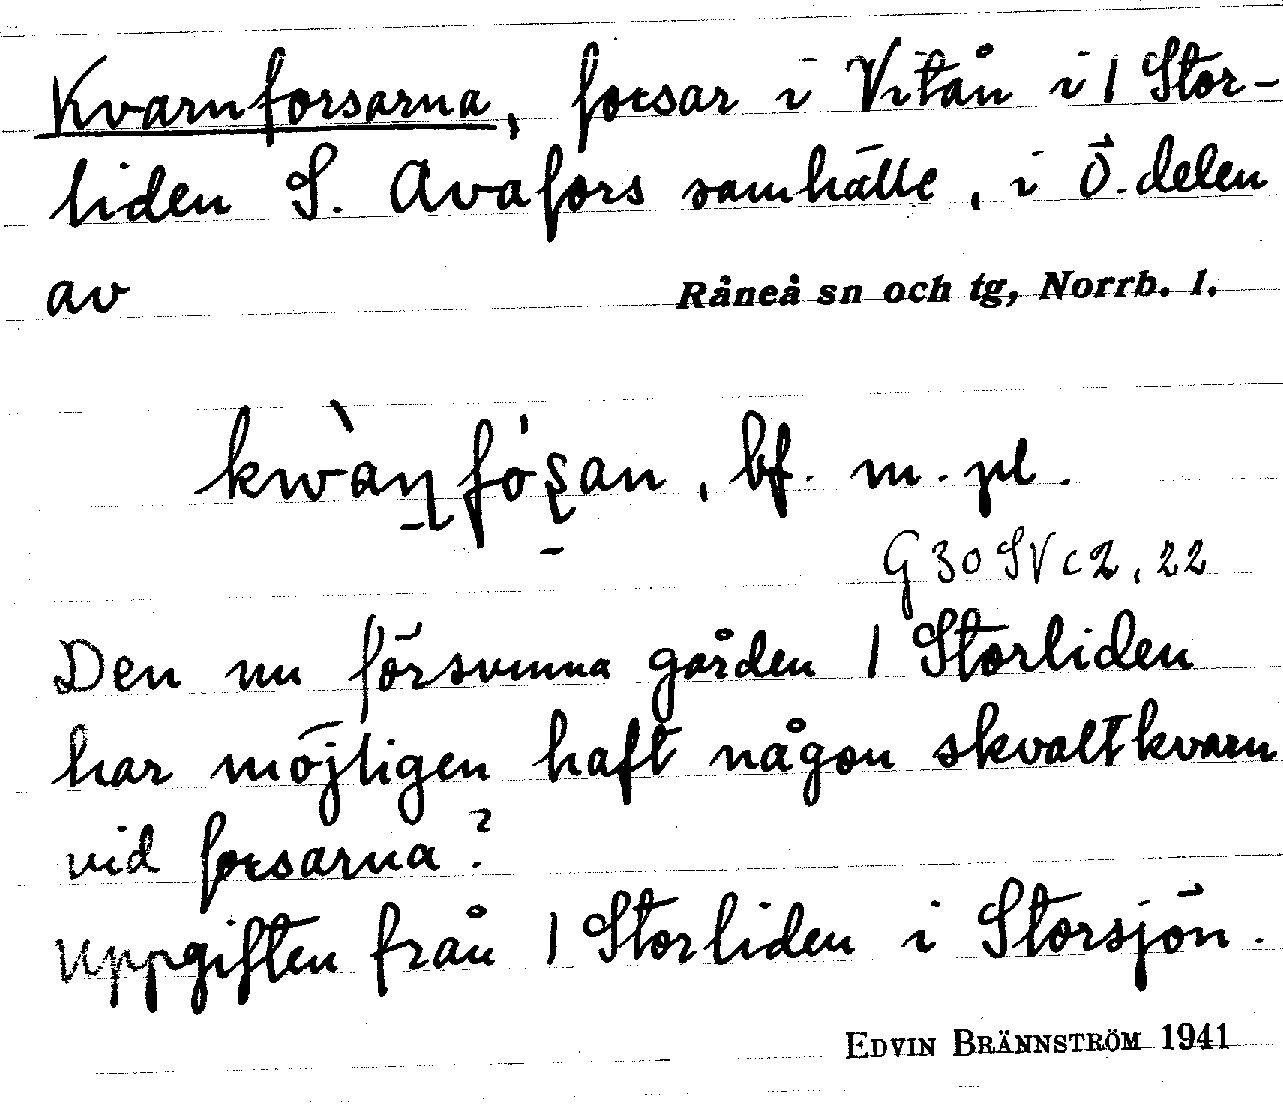 Kvarnforsarna, forsar i Vitån i 1 Stor-
liden S. Avafors samhälle, i Ö. delen
av Råneå sn och tg, Norrb. l.
kwàɳfóʂan, bf. m. pl.
G 30 SV c 2, 22
Den nu försvunna gården 1 Storliden
har möjligen haft någon skvaltkvarn
vid forsarna?
Uppgiften från 1 Storliden i Storsjön.
EDVIN BRÄNNSTRÖM 1941